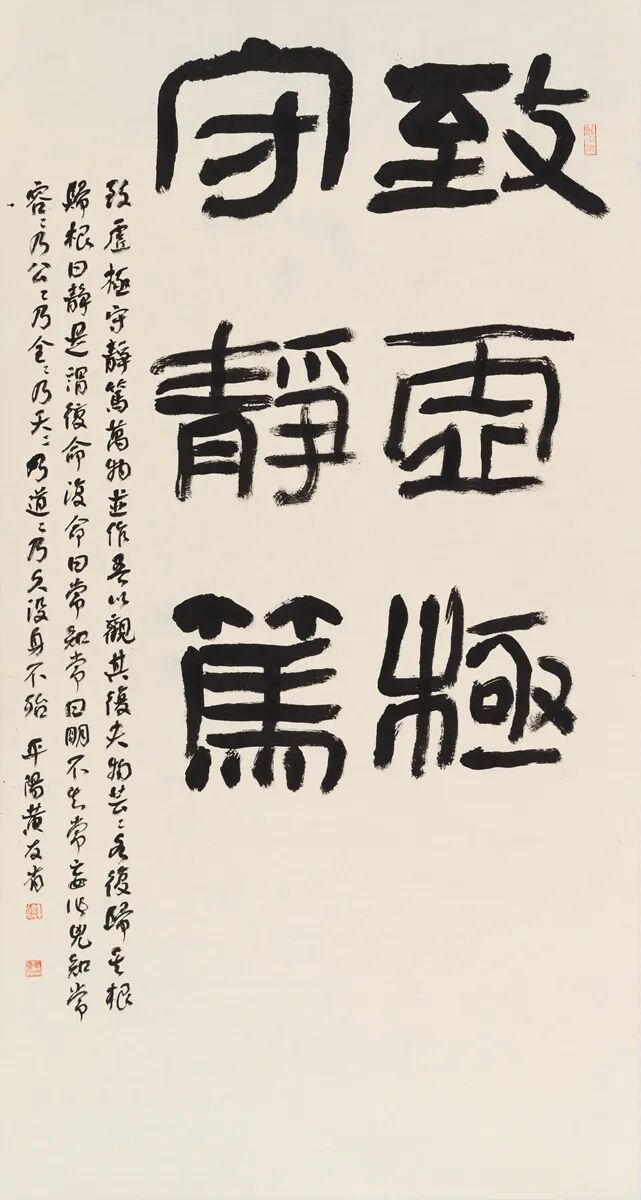 致虛極
守靜篤
致虛極守靜篤萬物並作吾以觀其復夫物芸〻各復歸其根
歸根曰靜是謂復命復命曰常知常曰明不知常妄作兇知常
容〻乃公〻乃全〻乃天〻乃道〻乃久沒身不殆 平陽黃友